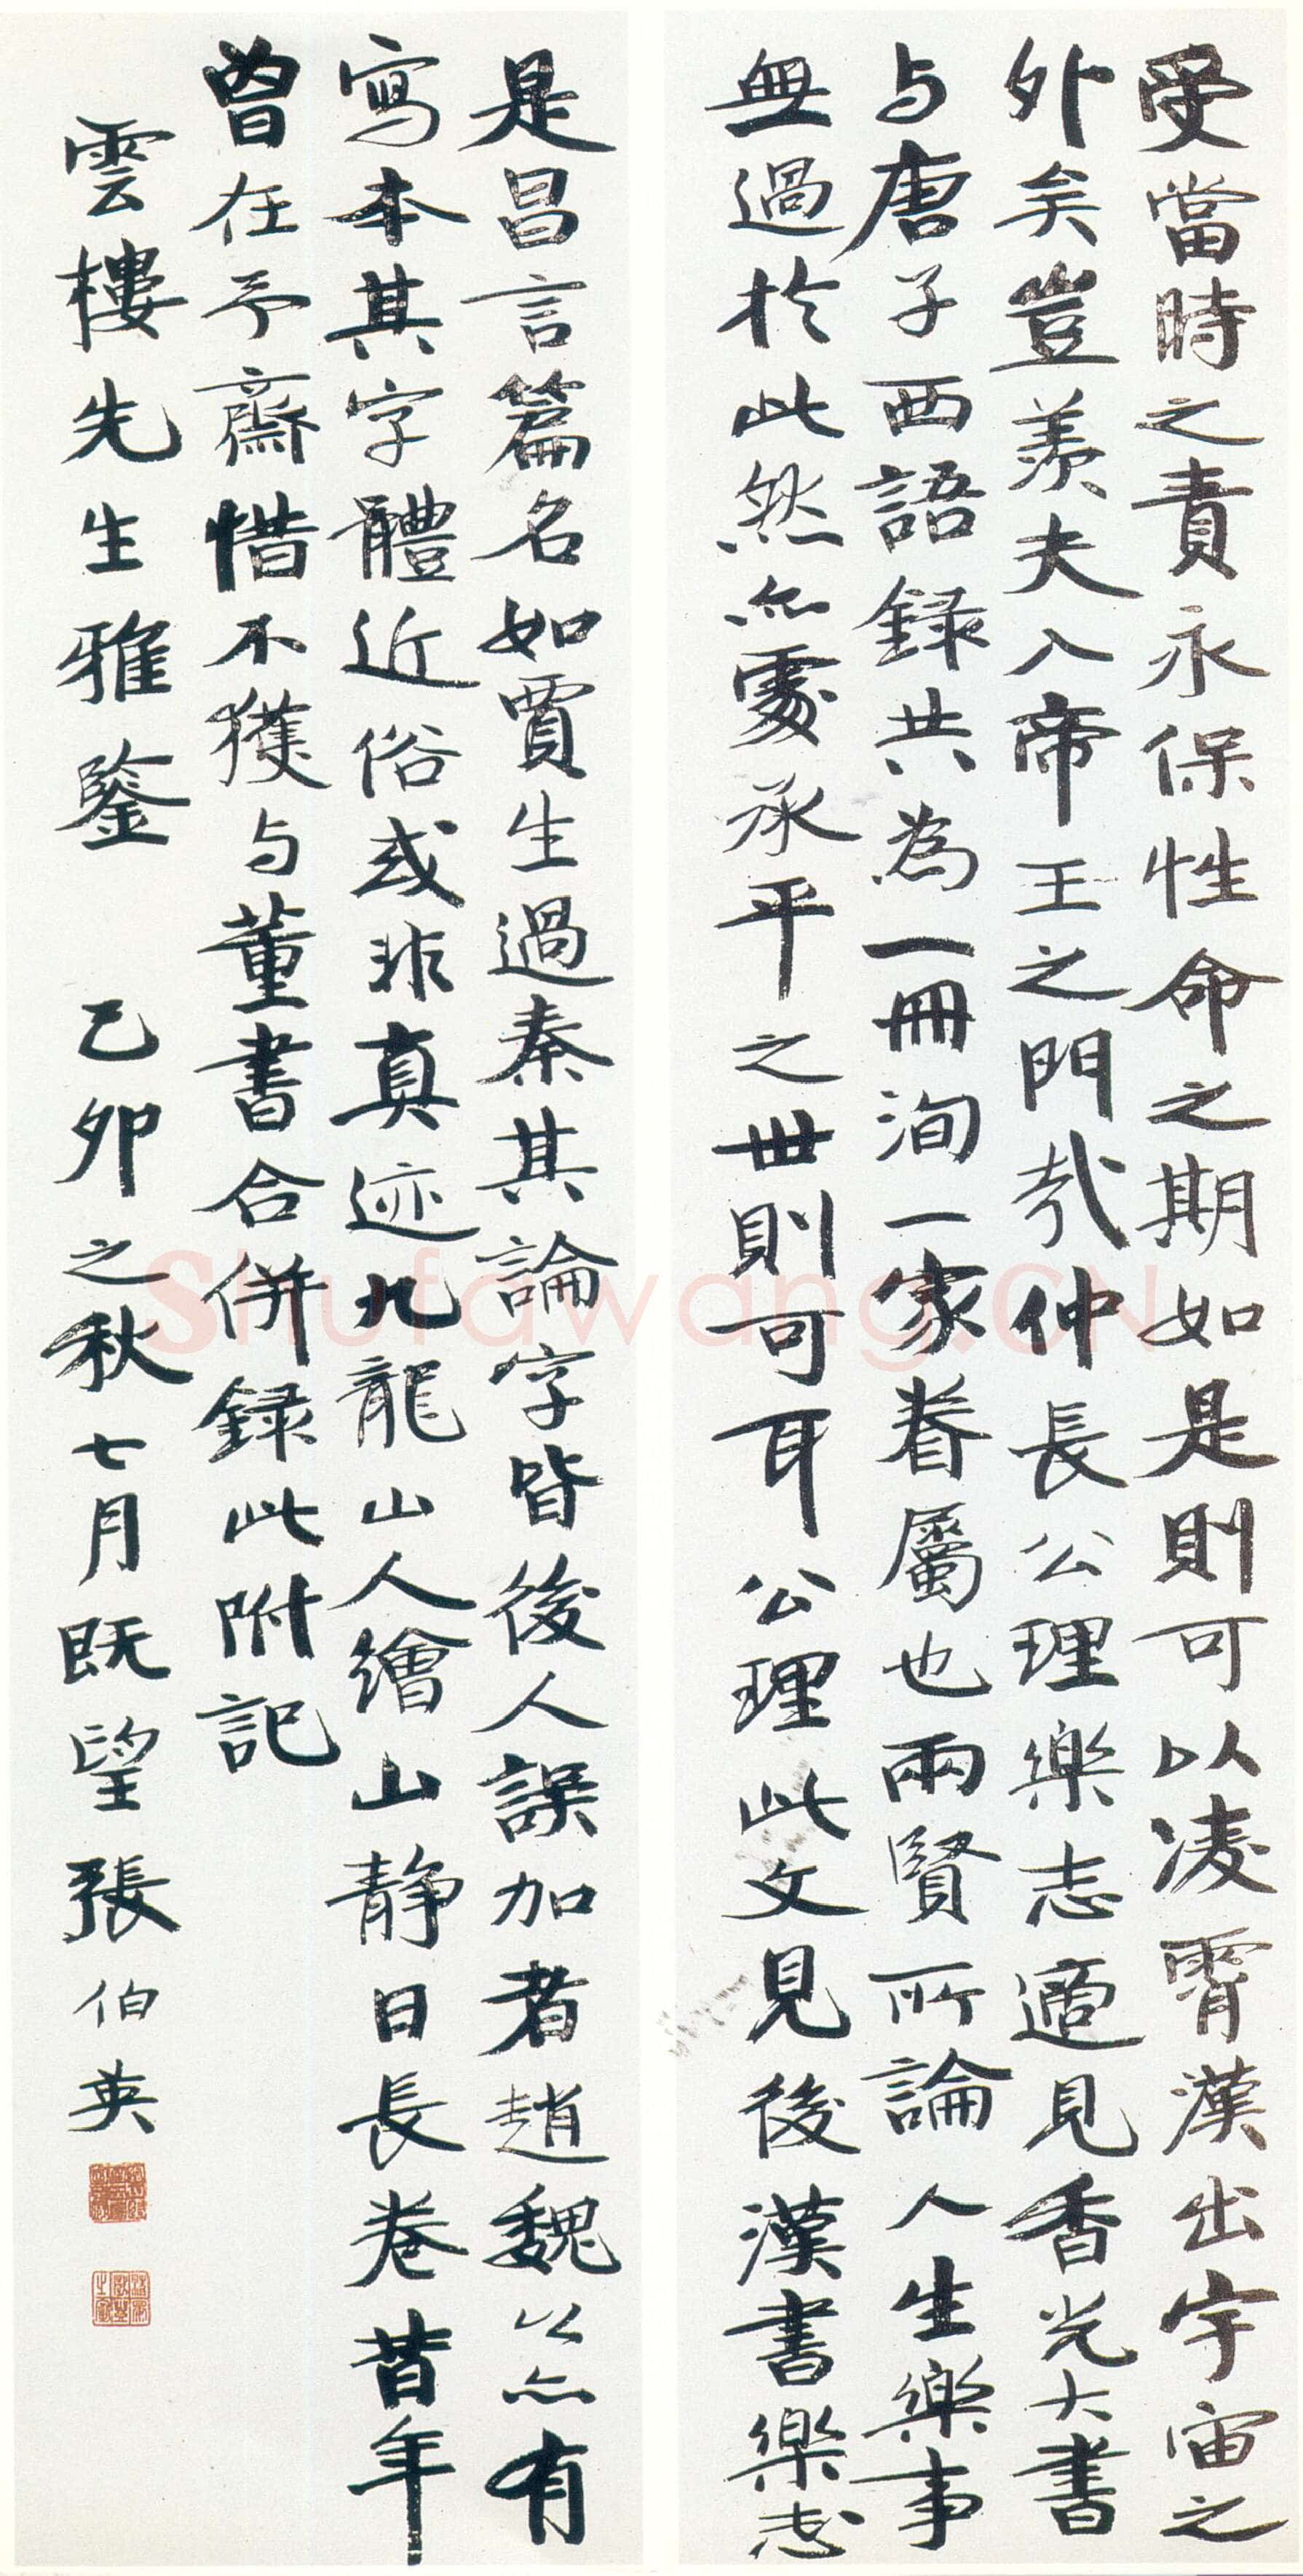 受當時之責永保性命之期如是則可以凌霄漢出宇宙之
外矣豈羨夫入帝王之門哉仲長公理樂志適見香光大書
与唐子西語録共為一冊洵一家眷屬也兩賢所論人生樂事
無過於此然亦處承平之世則可耳公理此文見後漢書樂志
是昌言篇名如賈生過秦其論字皆後人誤加者趙魏公亦有
寫本其字體近俗或非真迹九龍山人繪山静日長卷昔年
曾在予齋惜不獲与董書合併録此附記
雲樓先生雅鑒 己卯之秋七月既望張伯英
Shufawang.CN